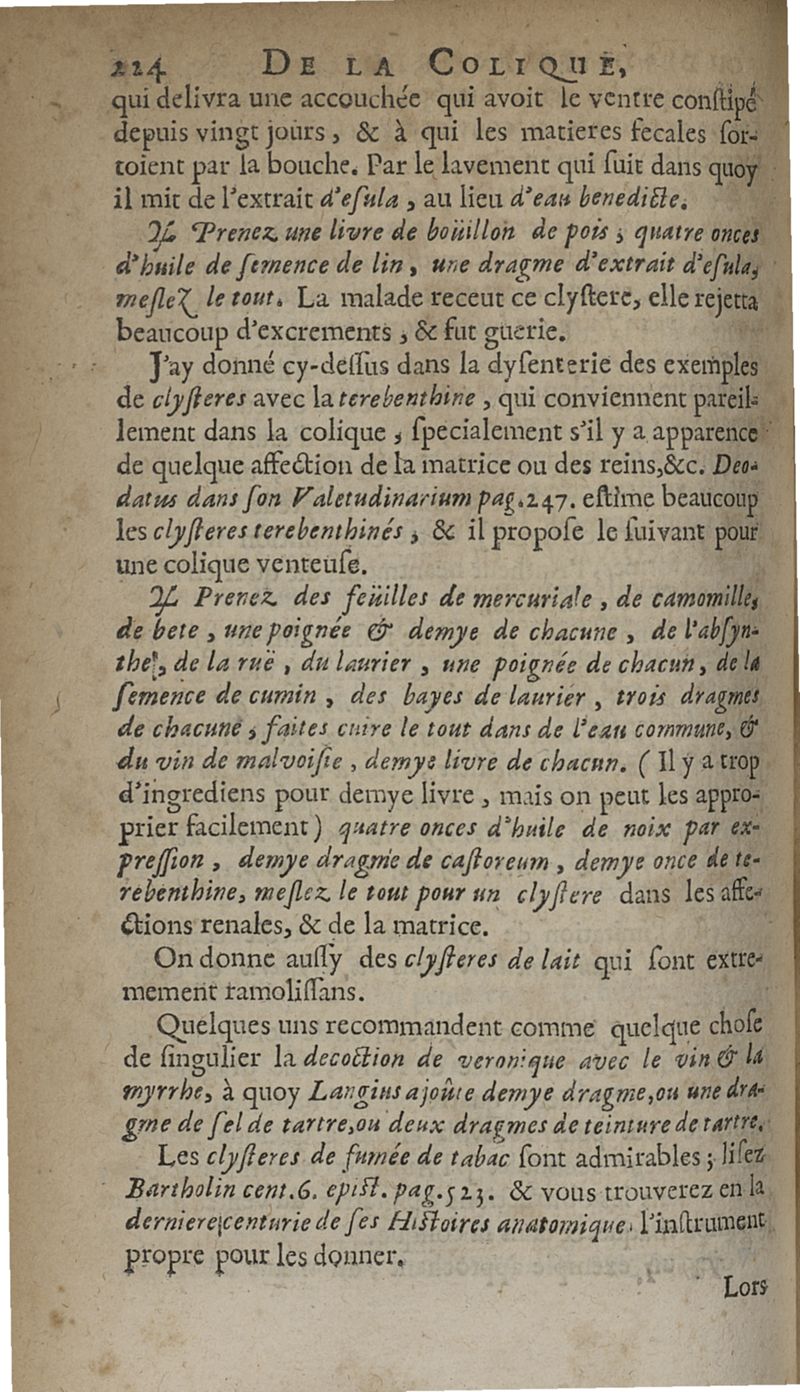 224 DE LA COLIQUE,
qui delivra une accouchée qui avoit le ventre conſtipé
depuis vingt jours, & à qui les matieres fecales ſor-
toient par la bouche. Par le lavement qui ſuit dans quoy
il mit de l'extrait d'eſula, au lieu d'eau benedicte.
℞ Prenez une livre de boüillon de pois, quatre onces
d'huile de ſemence de lin, une dragme d'extrait d'eſula,
meſlez le tout. La malade receut ce clyſtere, elle rejetta
beaucoup d'excrements, & fut guerie.
J'ay donné cy-deſſus dans la dyſenterie des exemples
de clyſteres avec la terebenthine, qui conviennent pareil-
lement dans la colique, ſpecialement s'il y a apparence
de quelque affection de la matrice ou des reins,&c. Deo-
datus dans ſon Valetudinarium pag.247. eſtime beaucoup
les clyſteres terebenthinés, & il propoſe le ſuivant pour
une colique venteuſe.
℞ Prenez des feüilles de mercuriale, de camomille,
de bete, une poignée & demye de chacune, de l'abſyn-
the, de la ruë, du laurier, une poignée de chacun, de la
ſemence de cumin, des bayes de laurier, trois dragmes
de chacune, faites cuire le tout dans de l'eau commune, &
du vin de malvoiſie, demye livre de chacun. (Il y a trop
d'ingrediens pour demye livre, mais on peut les appro-
prier facilement) quatre onces d'huile de noix par ex-
preſſion, demye dragme de caſtoreum, demye once de te-
rebenthine, meſlez le tout pour un clyſtere dans les affe-
ctions renales, & de la matrice.
On donne auſſy des clyſteres de lait qui ſont extre-
mement ramoliſſans.
Quelques uns recommandent comme quelque choſe
de ſingulier la decoction de veronique avec le vin & la
myrrhe, à quoy Langius ajoûte demye dragme,ou une dra-
gme de ſel de tartre,ou deux dragmes de teinture de tartre.
Les clyſteres de fumée de tabac ſont admirables; liſez
Bartholin cent.6. epiſt. pag.523. & vous trouverez en la
derniere centurie de ſes Hiſtoires anatomique, l'inſtrument
propre pour les donner.
Lors